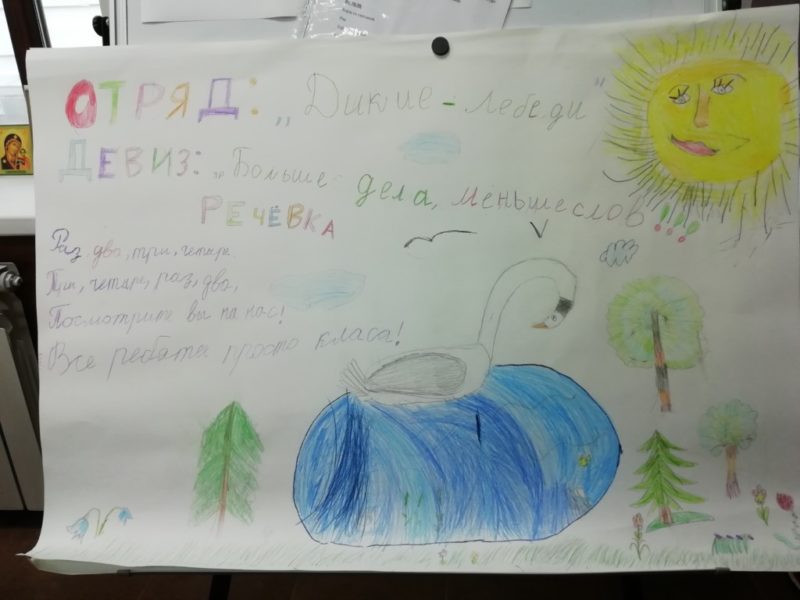 ОТРЯД: „Дикие - лебеди"
ДЕВИЗ: „Больше дела, меньше слов!!!
РЕЧЁВКА
Раз, два, три, четыре.
Три, четыре, раз, два,
Посмотрите вы на нас!
Все ребята просто класа!